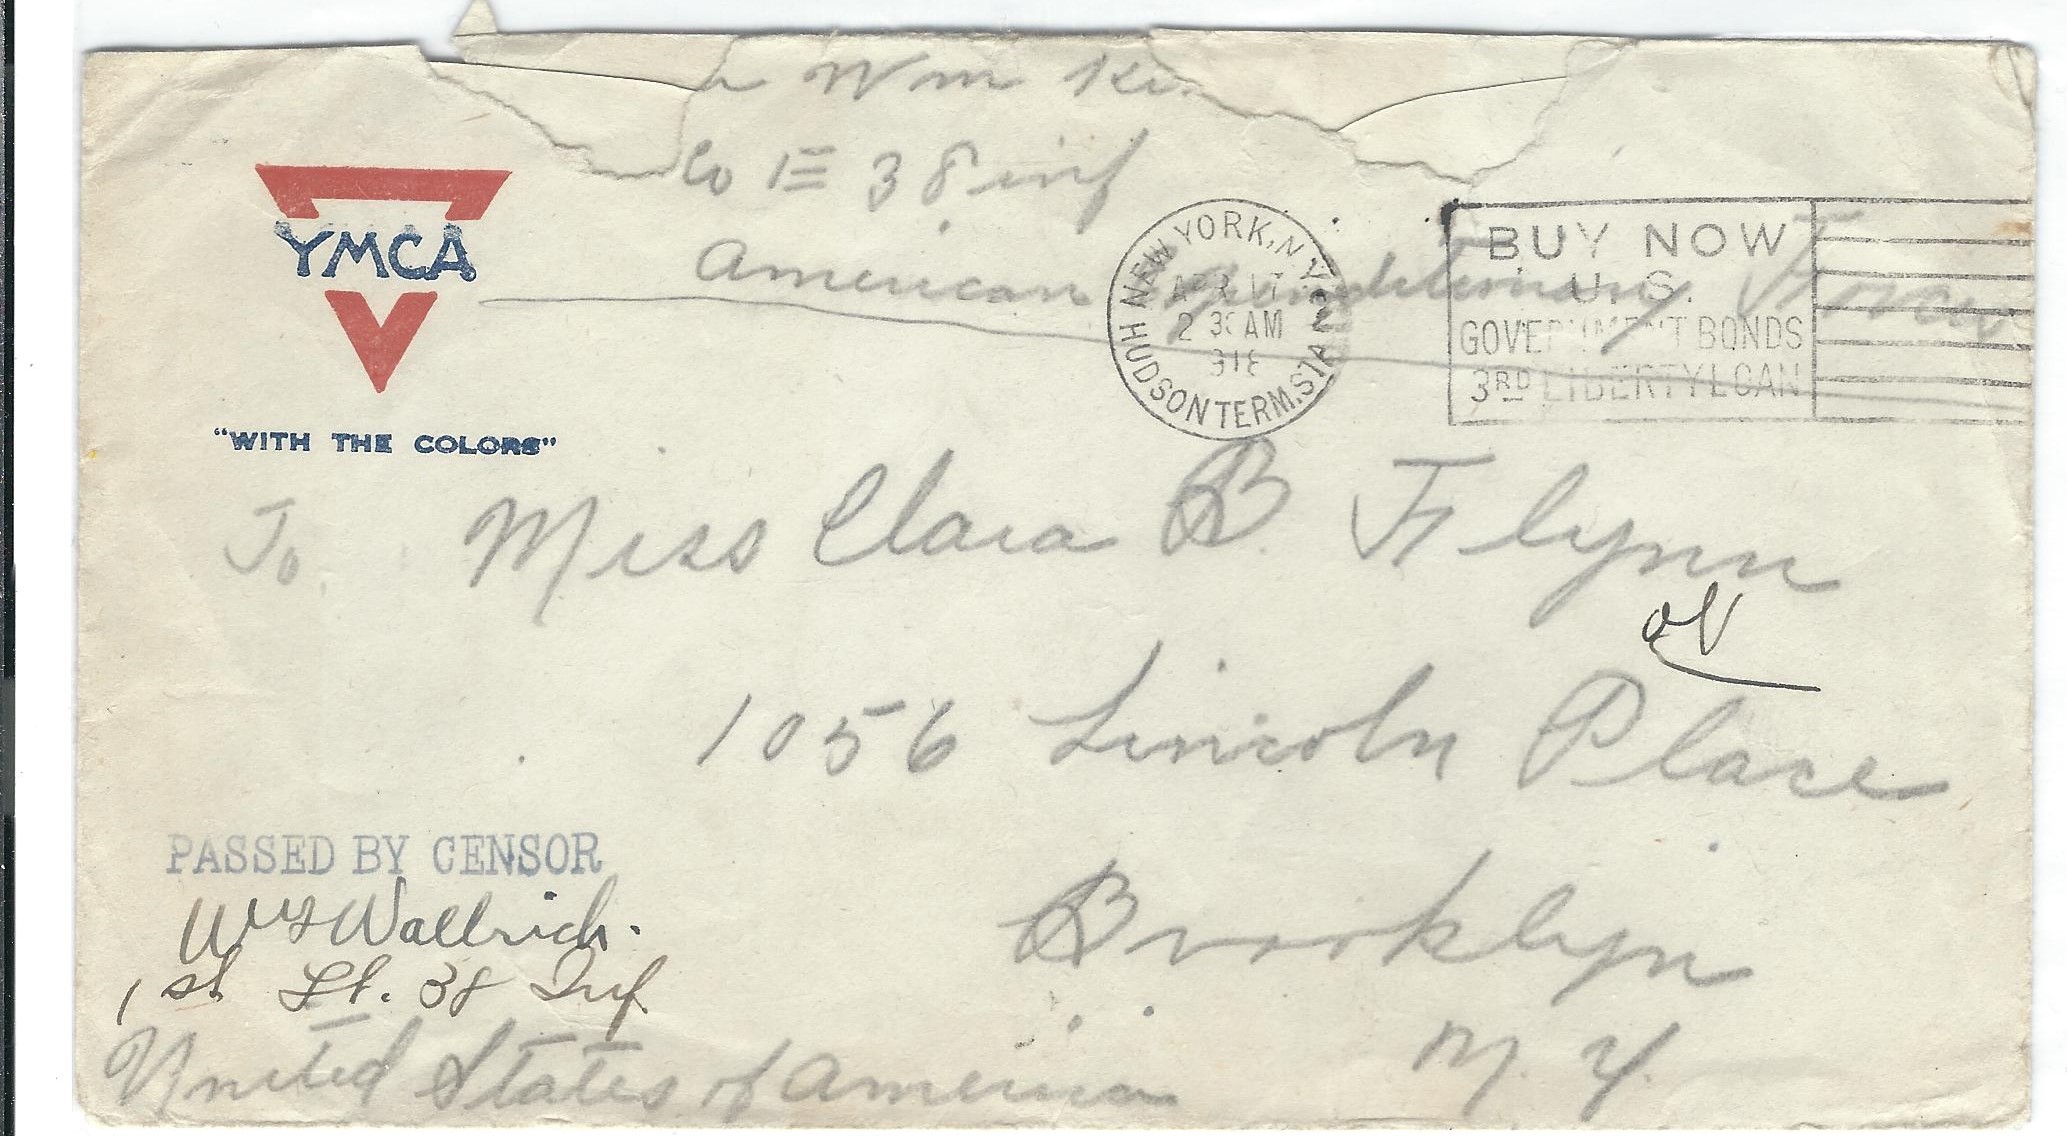 Wm
Co E 38 inf
American Expeditionary Forces
YMCA
"WITH THE COLORS"
NEW YORK, N.Y.
APR 17
2 30 AM
1918
HUDSON TERM. STA.
BUY NOW
U.S.
GOVERNMENT BONDS
3RD LIBERTY LOAN
To Miss Clara B. Flynn
1056 Lincoln Place
Brooklyn
N. Y.
PASSED BY CENSOR
Wallrich.
1st Lt. 38 Inf.
United States of America